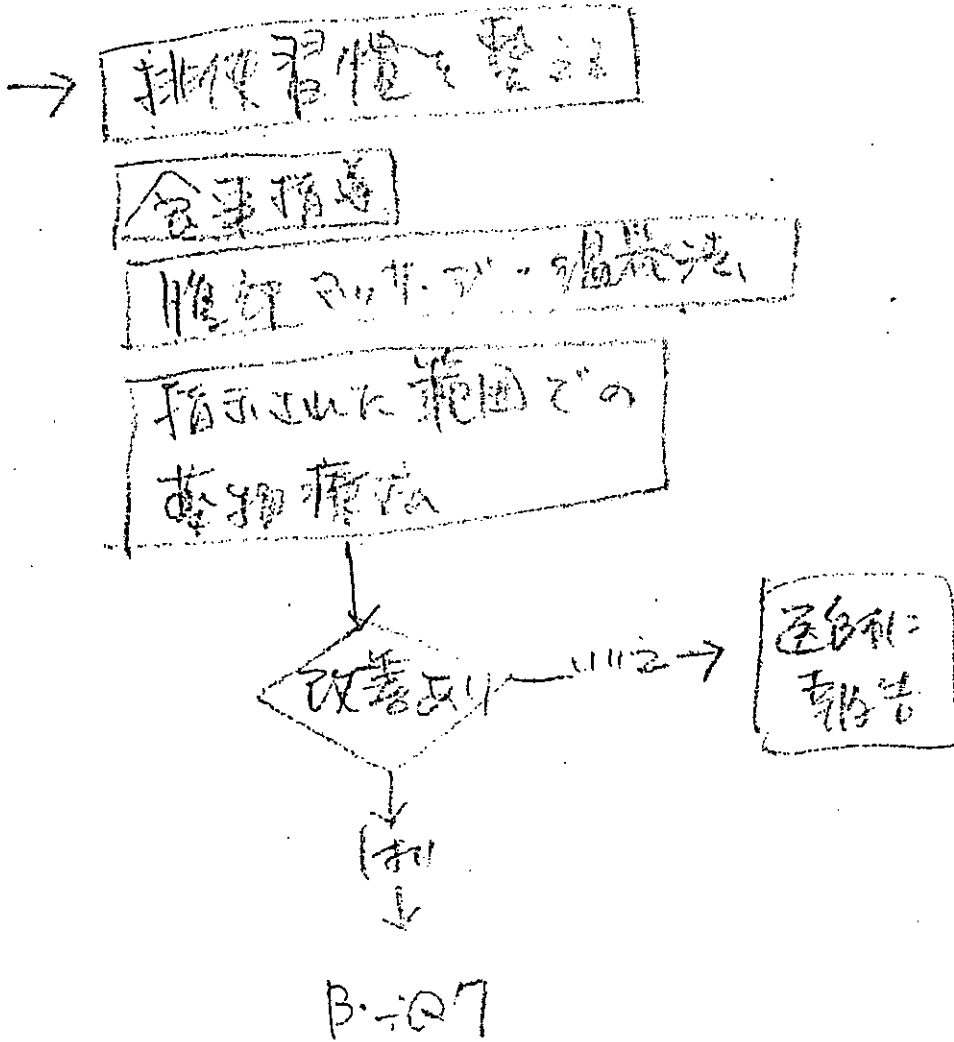 排便習慣を整える
食事指導
腹部マッサージ・温罨法
指示された範囲での
薬物療法
改善あり
いいえ
医師に
報告
はい